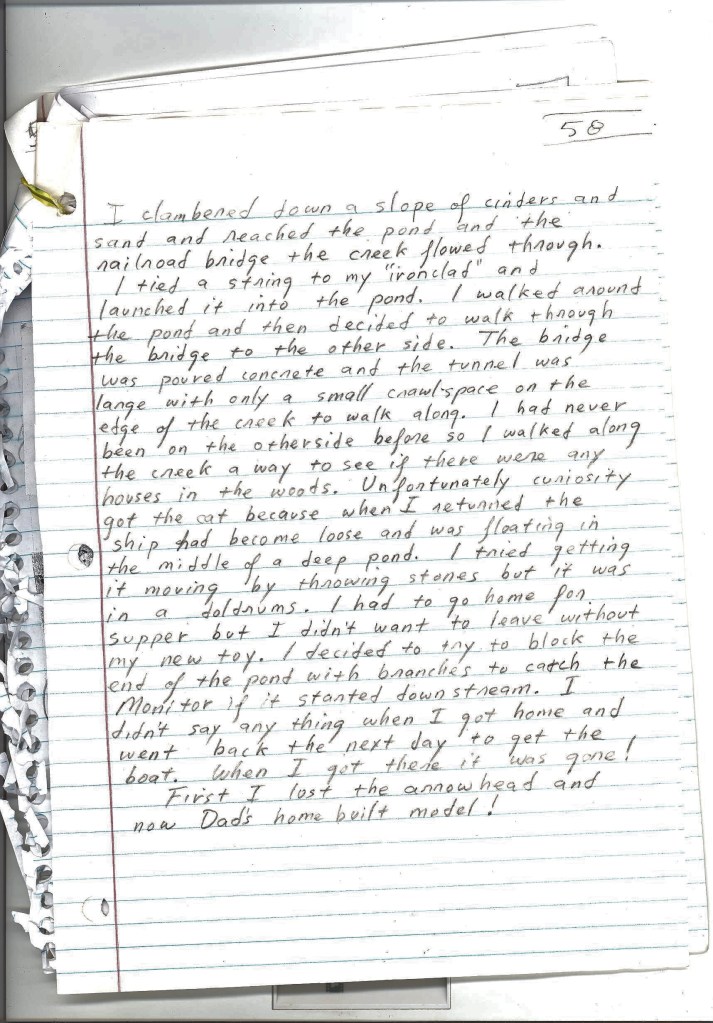 58
I clambered down a slope of cinders and
sand and reached the pond and the
railroad bridge the creek flowed through.
I tied a string to my "ironclad" and
launched it into the pond. I walked around
the pond and then decided to walk through
the bridge to the other side. The bridge
was poured concrete and the tunnel was
large with only a small crawl-space on the
edge of the creek to walk along. I had never
been on the otherside before so I walked along
the creek a way to see if there were any
houses in the woods. Unfortunately curiosity
got the cat because when I returned the
ship had become loose and was floating in
the middle of a deep pond. I tried getting
it moving by throwing stones but it was
in a doldrums. I had to go home for
supper but I didn't want to leave without
my new toy. I decided to try to block the
end of the pond with branches to catch the
Monitor if it started down stream. I
didn't say any thing when I got home and
went back the next day to get the
boat. When I got there it was gone!
First I lost the arrowhead and
now Dad's home built model!